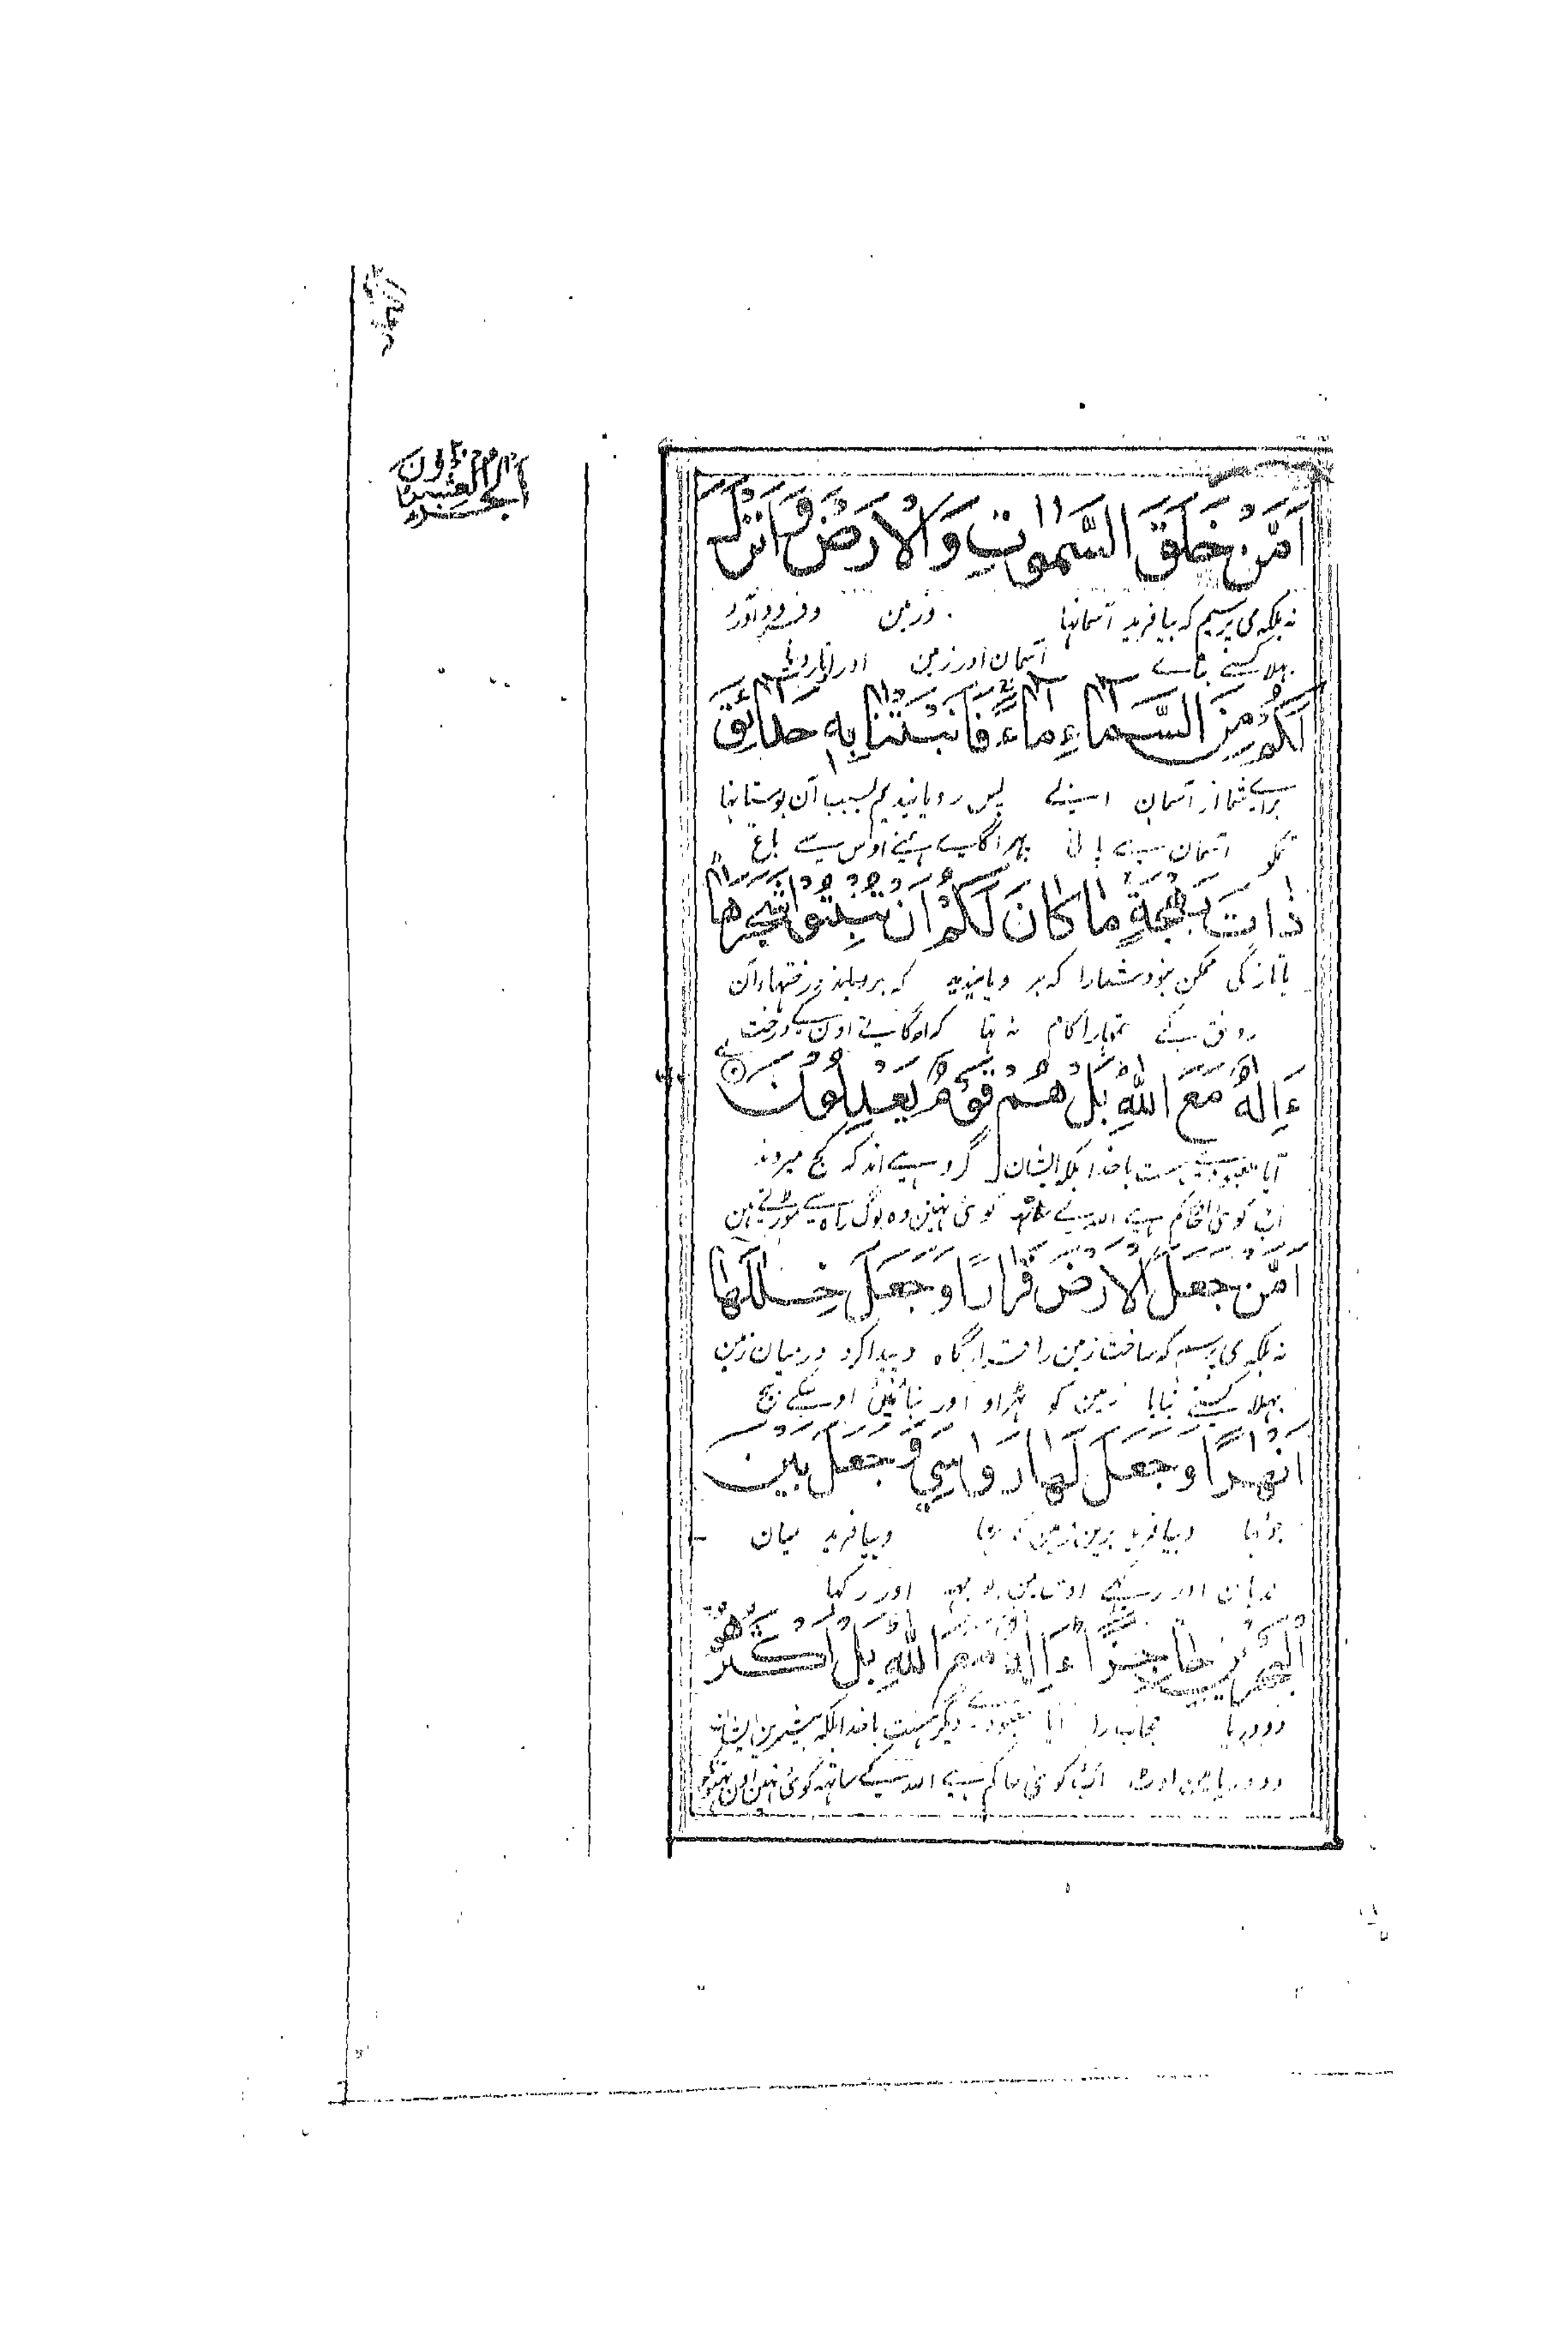 الجزء العشرون
اَمَّنْ خَلَقَ السَّمٰوٰتِ وَالْاَرْضَ وَاَنْزَلَ
نه بلکه می پرسیم که بیافرید آسمانها وزمین وفرود آورد
بہلا کسنے بنائے آسمان اور زمین اور اوتار دیا
لَكُمْ مِنَ السَّمَاءِ مَاءً فَاَنْبَتْنَا بِهٖ حَدَائِقَ
برائے شما از آسمان پس رویانیدیم بسبب آن بوستانها
تمکو آسمان سے پانی پہر اگائے ہمنے اوس سے باغ
ذَاتَ بَهْجَةٍ مَا كَانَ لَكُمْ اَنْ تُنْبِتُوْا شَجَرَهَا
باتازگی ممکن نبود شمارا که درختهاء آن
رونق کے تمہارا کام نہ تہا کہ اوگاتے اون کے درخت
ءَاِلٰهٌ مَعَ اللّٰهِ بَلْ هُمْ قَوْمٌ يَعْدِلُوْنَ
آیا معبودے ہست باخدا بلکه ایشان گروہے اند که کج میروند
اب کوئی حاکم ہے اللہ کے ساتہہ کوئی نہین وہ لوگ راہ سے مورتے ہین
اَمَّنْ جَعَلَ الْاَرْضَ قَرَارًا وَجَعَلَ خِلٰلَهَا
نه بلکه می پرسم که ساخت زمین را قرارگاه وپیدا کرد درمیان زمین
بہلا کسنے بنایا زمین کو ٹہراو اور بنائین اوسکے بیچ
اَنْهٰرًا وَجَعَلَ لَهَا رَوَاسِيَ وَجَعَلَ بَيْنَ
جویها وبیافرید برین زمین وبیافرید میان
ندیان اور رکہے اوس مین بوجہہ اور رکہا
الْبَحْرَيْنِ حَاجِزًا ءَاِلٰهٌ مَعَ اللّٰهِ بَلْ اَكْثَرُهُمْ
دو دریا حجاب را آیا معبودے دیگر ہست باخدا بلکه بیشترین ایشان
دو دریا مین اوٹ اب کوئی حاکم ہے اللہ کے ساتہہ کوئی نہین اون بہتونکو